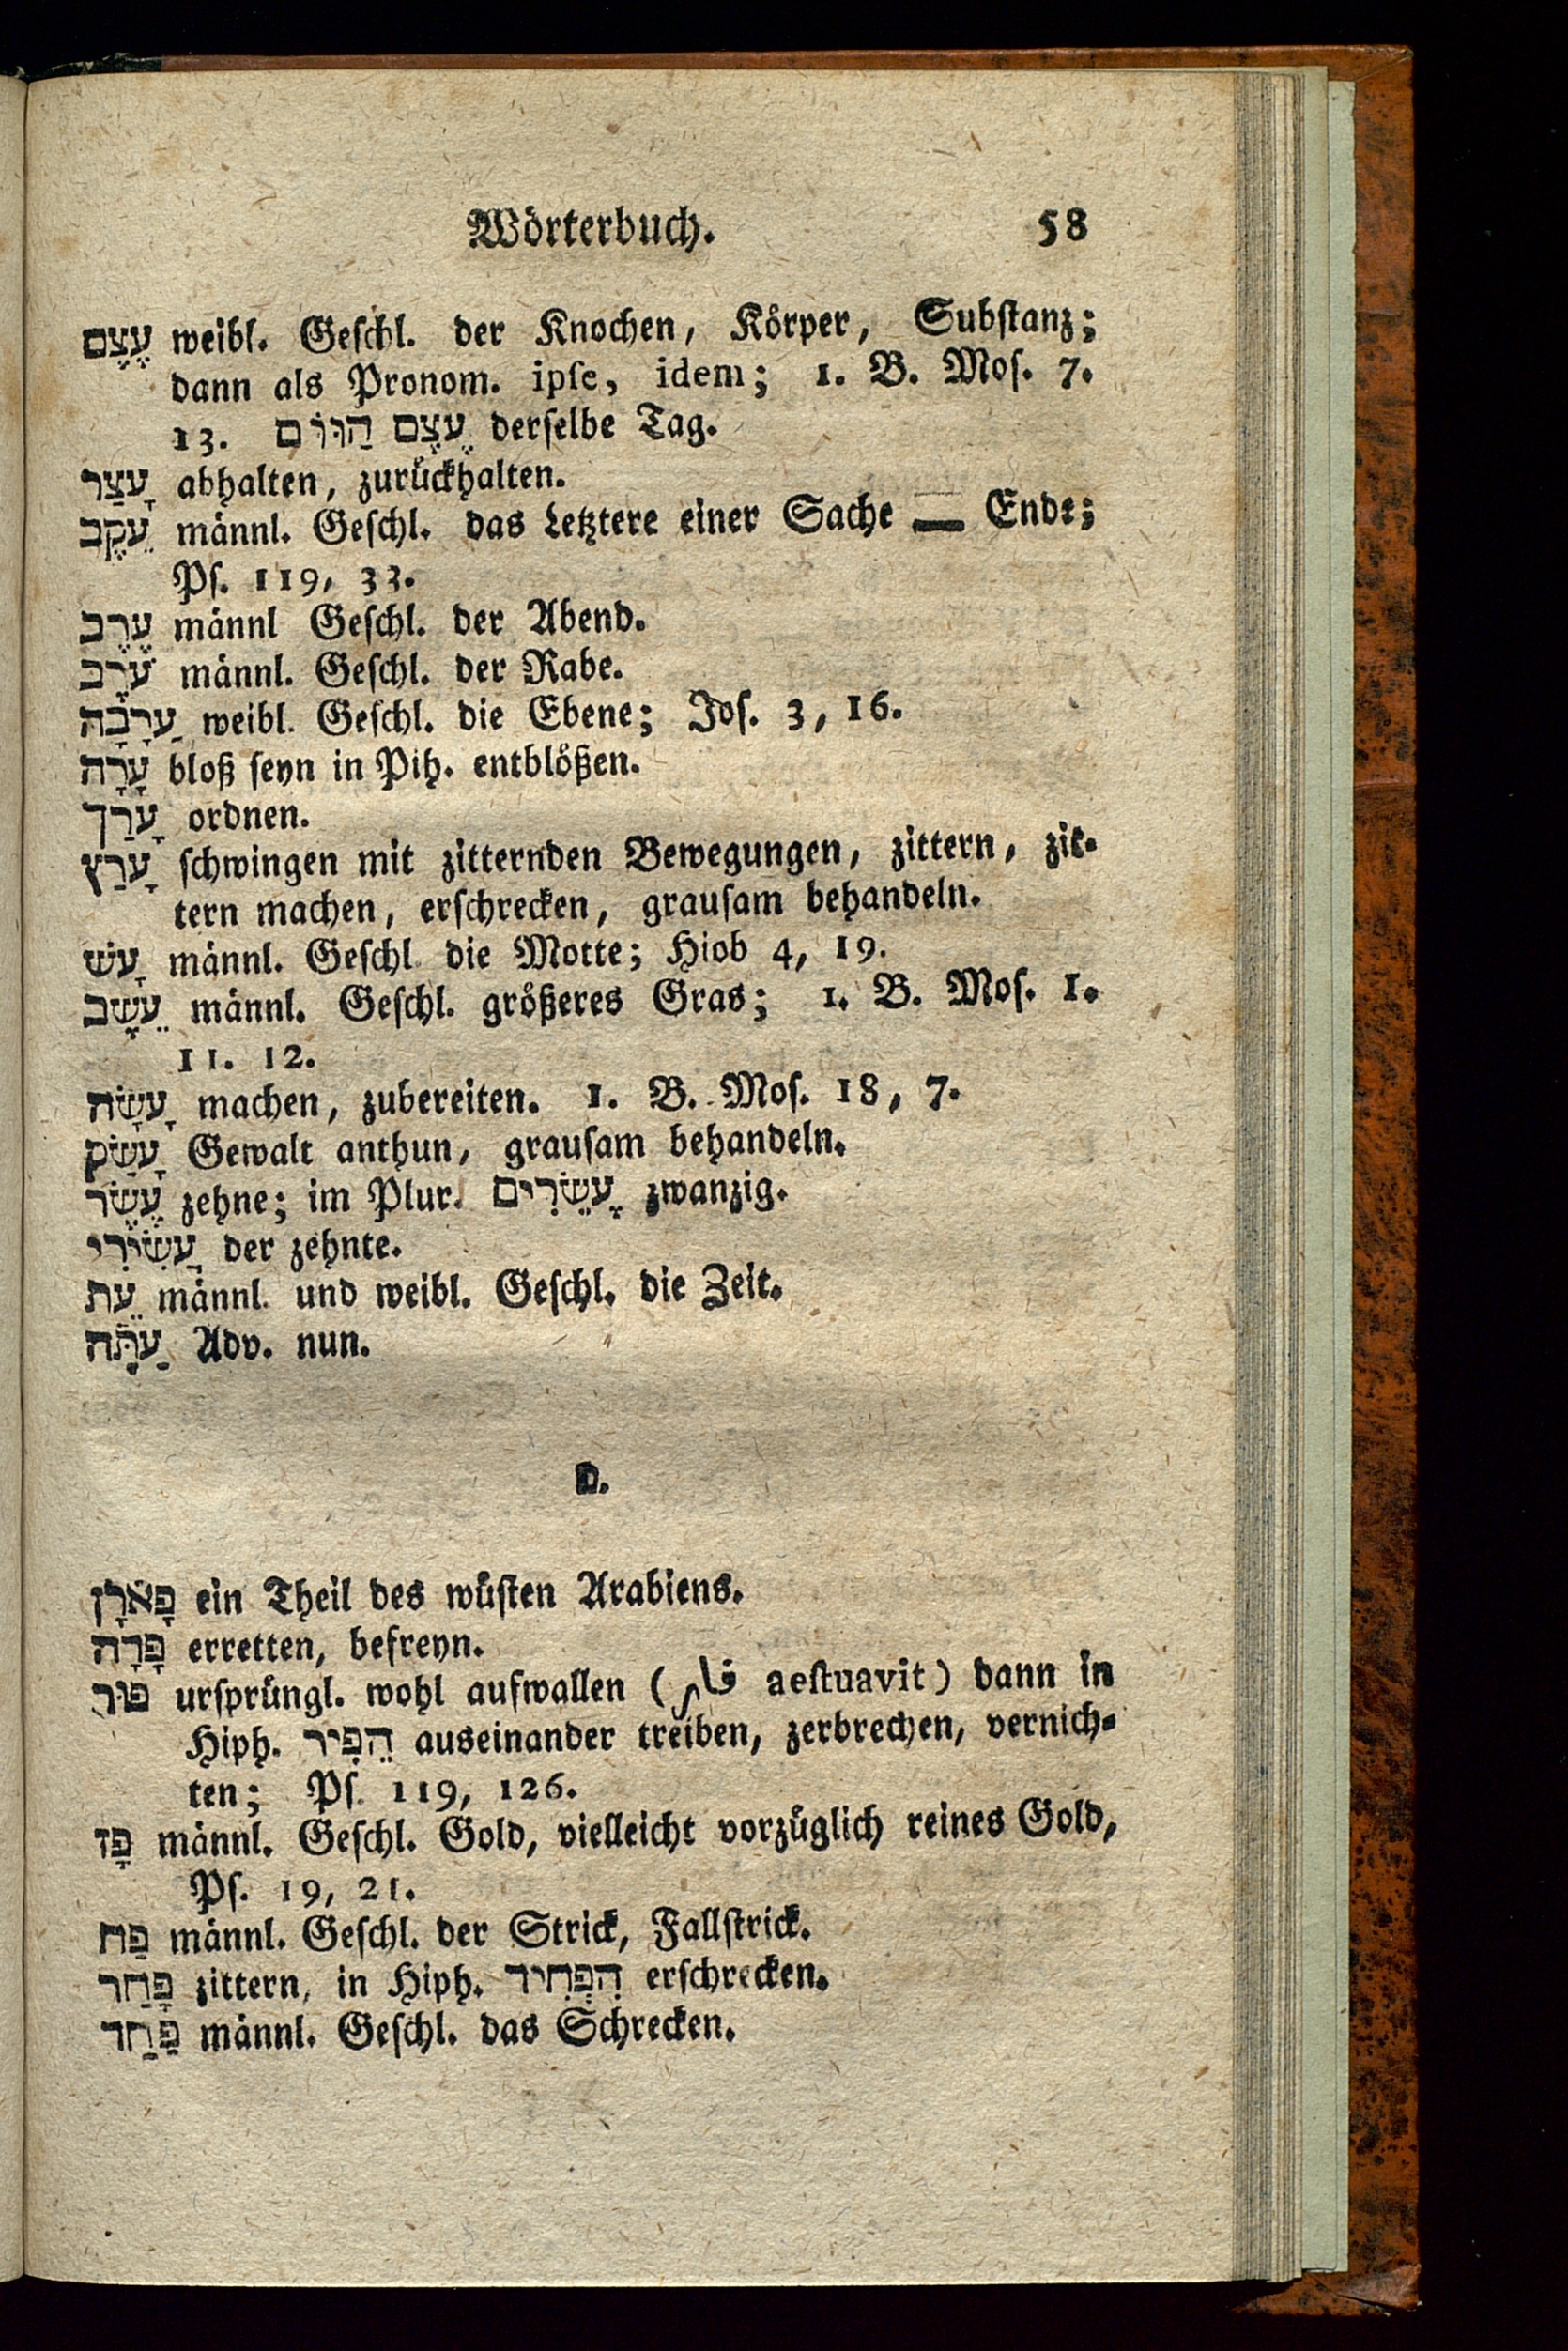 Wörterbuch. 58
עֶצֶם weibl. Geschl. der Knochen, Körper, Substanz;
dann als Pronom. ipse, idem; 1. B. Mos. 7.
13. עֶצֶם הַיּוֹם derselbe Tag.
עָצַר abhalten, zurückhalten.
עֵקֶב männl. Geschl. das Letztere einer Sache — Ende;
Ps. 119, 33.
עֶרֶב männl Geschl. der Abend.
עֹרֵב männl. Geschl. der Rabe.
עַרָבָה weibl. Geschl. die Ebene; Jos. 3, 16.
עָרָה bloß seyn in Pih. entblößen.
עָרַך ordnen.
עָרַץ schwingen mit zitternden Bewegungen, zittern, zit-
tern machen, erschrecken, grausam behandeln.
עָשׁ männl. Geschl. die Motte; Hiob 4, 19.
עֵשָׂב männl. Geschl. größeres Gras; 1. B. Mos. 1.
11. 12.
עָשָׂה machen, zubereiten. 1. B. Mos. 18, 7.
עָשַׁק Gewalt anthun, grausam behandeln.
עֶשֶׂר zehne; im Plur. עֶשֵׂרִים zwanzig.
עַשִׂירִי der zehnte.
עֵת männl. und weibl. Geschl. die Zeit.
עַתָּה Adv. nun.
פ.
פָּארָן ein Theil des wüsten Arabiens.
פָּרָה erretten, befreyn.
פּוּר ursprüngl. wohl aufwallen (فار aestuavit) dann in
Hiph. הֵפִיר auseinander treiben, zerbrechen, vernich-
ten; Ps. 119, 126.
פָּז männl. Geschl. Gold, vielleicht vorzüglich reines Gold,
Ps. 19, 21.
פַּח männl. Geschl. der Strick, Fallstrick.
פָּחַר zittern, in Hiph. הִפְחִיד erschrecken.
פַּחַד männl. Geschl. das Schrecken.